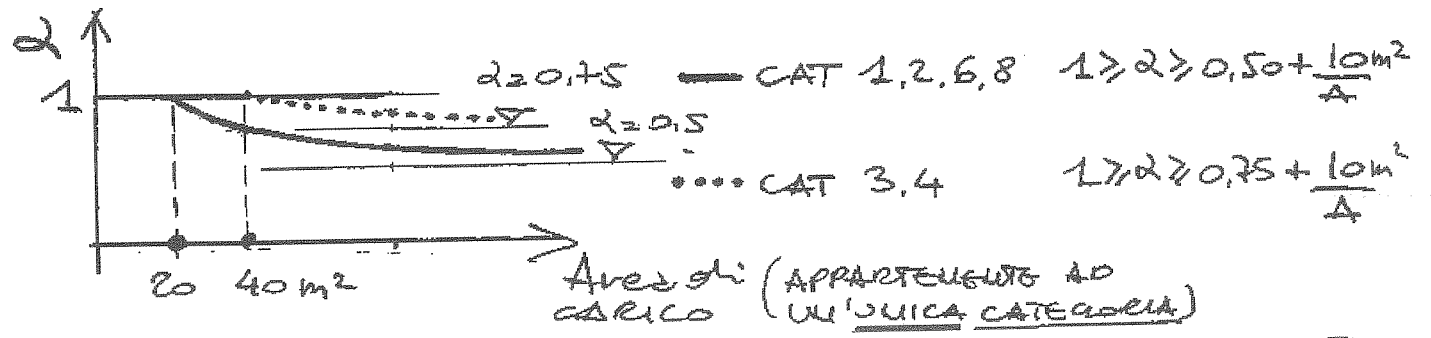 α
1
α=0,75
CAT 1,2,6,8 1 ≥ α ≥ 0,50 + 10m²/A
α=0,5
CAT 3,4 1 ≥ α ≥ 0,75 + 10m²/A
20 40 m²
Area di (APPARTENENTE AD
CARICO UN'UNICA CATEGORIA)